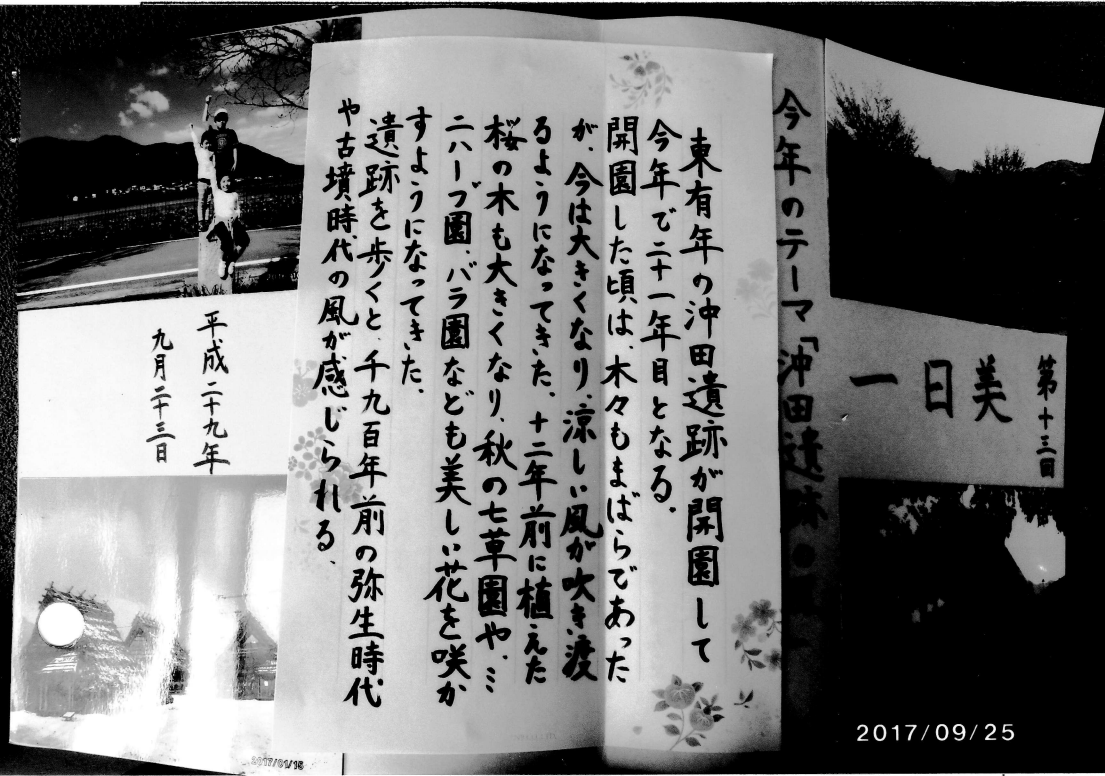 第十三回
美
日
一
今年のテーマ「沖田遺跡
東有年の沖田遺跡が開園して
今年で二十一年目となる。
開園した頃は、木々もまばらであった
が、今は大きくなり、涼しい風が吹き渡
るようになってきた。十二年前に植えた
桜の木も大きくなり、秋の七草園や、ミ
ニハーブ園、バラ園なども美しい花を咲か
すようになってきた。
遺跡を歩くと、千九百年前の弥生時代
や古墳時代の風が感じられる。
平成二十九年
九月二十三日
2017/01/15
2017/09/25